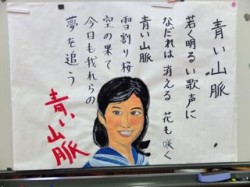 青い山脈
若く明るい歌声に
なだれは消える 花も咲く
青い山脈
雪割り桜
空の果て
今日もわれらの
夢を追う
青い山脈